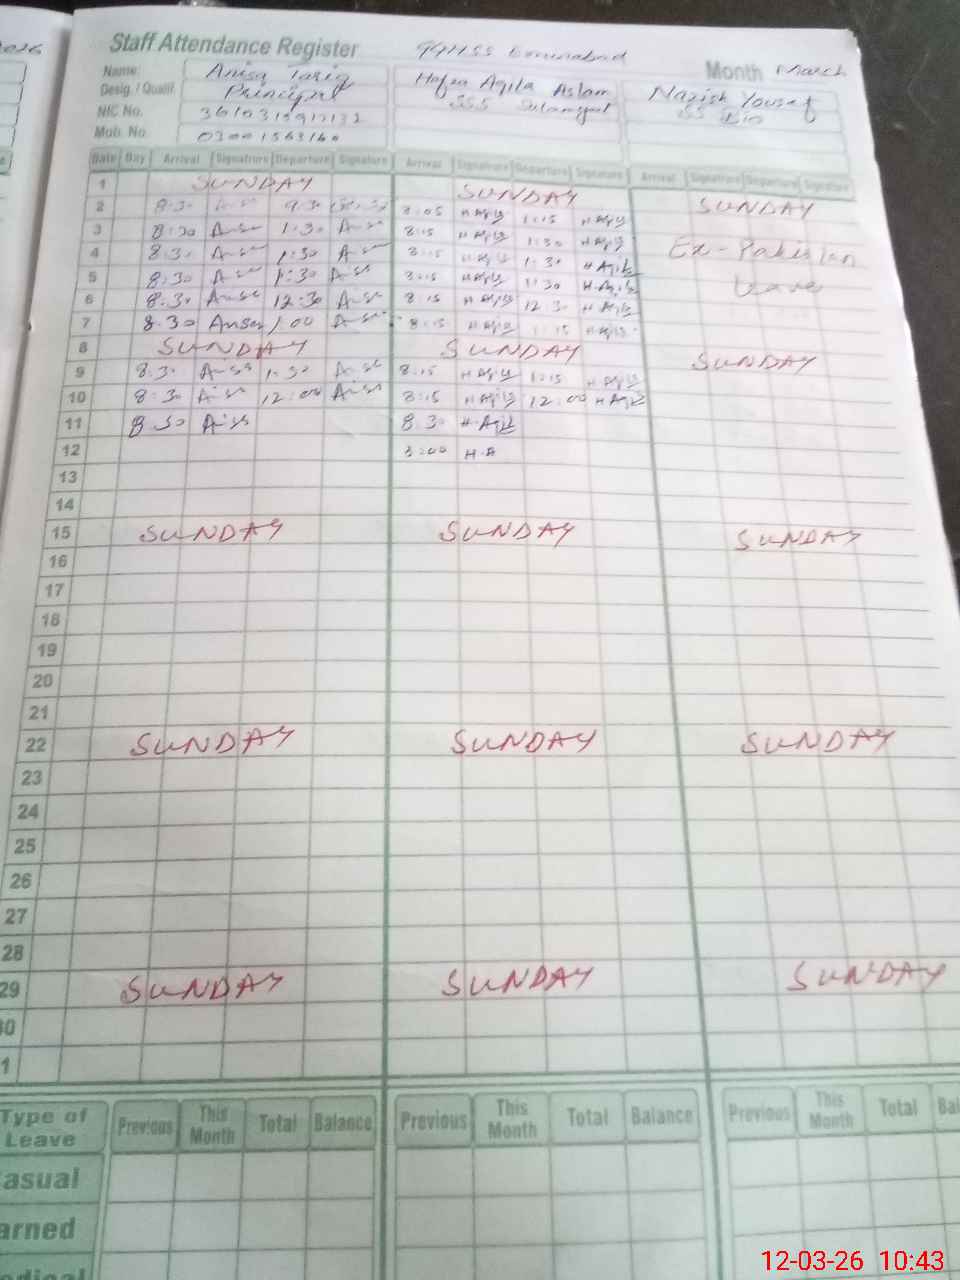 2026
Staff Attendance Register GGHSS Eminabad
Month March
Name: Anisa Tariq Hafza Aqila Aslam Nazish Yousaf
Desig. / Qualif. Principal SSS Islamyat SS Bio
NIC No.
Mob. No.
Date Day Arrival Signatrure Departure Signature Arrival Signatrure Departure Signature Arrival Signatrure Departure Signature
1 SUNDAY SUNDAY SUNDAY
2 8:30 9:30 8:05 H Aqila 1:15 H Aqila
3 8:30 Anisa 1:30 Anisa 8:15 H Aqila 1:30 H Aqila Ex-Pakistan
4 8:30 Anisa 1:30 Anisa 8:15 H Aqila 1:30 H Aqila
5 8:30 Anisa 1:30 Anisa 8:15 H Aqila 1:30 H Aqila Leave
6 8:30 Anisa 12:30 Anisa 8:15 H Aqila 12:30 H Aqila
7 8:30 Anisa 1:00 Anisa 8:15 H Aqila 1:15 H Aqila
8 SUNDAY SUNDAY SUNDAY
9 8:30 Anisa 1:30 Anisa 8:15 H Aqila 1:15 H Aqila
10 8:30 Anisa 12:00 Anisa 8:15 H Aqila 12:00 H Aqila
11 8:30 Anisa 8:30 H Aqila
12 H.A
13
14
15 SUNDAY SUNDAY SUNDAY
16
17
18
19
20
21
22 SUNDAY SUNDAY SUNDAY
23
24
25
26
27
28
29 SUNDAY SUNDAY SUNDAY
30
1
Type of Leave Previous This Month Total Balance Previous This Month Total Balance Previous This Month Total Bal
asual
arned
edical
12-03-26 10:43